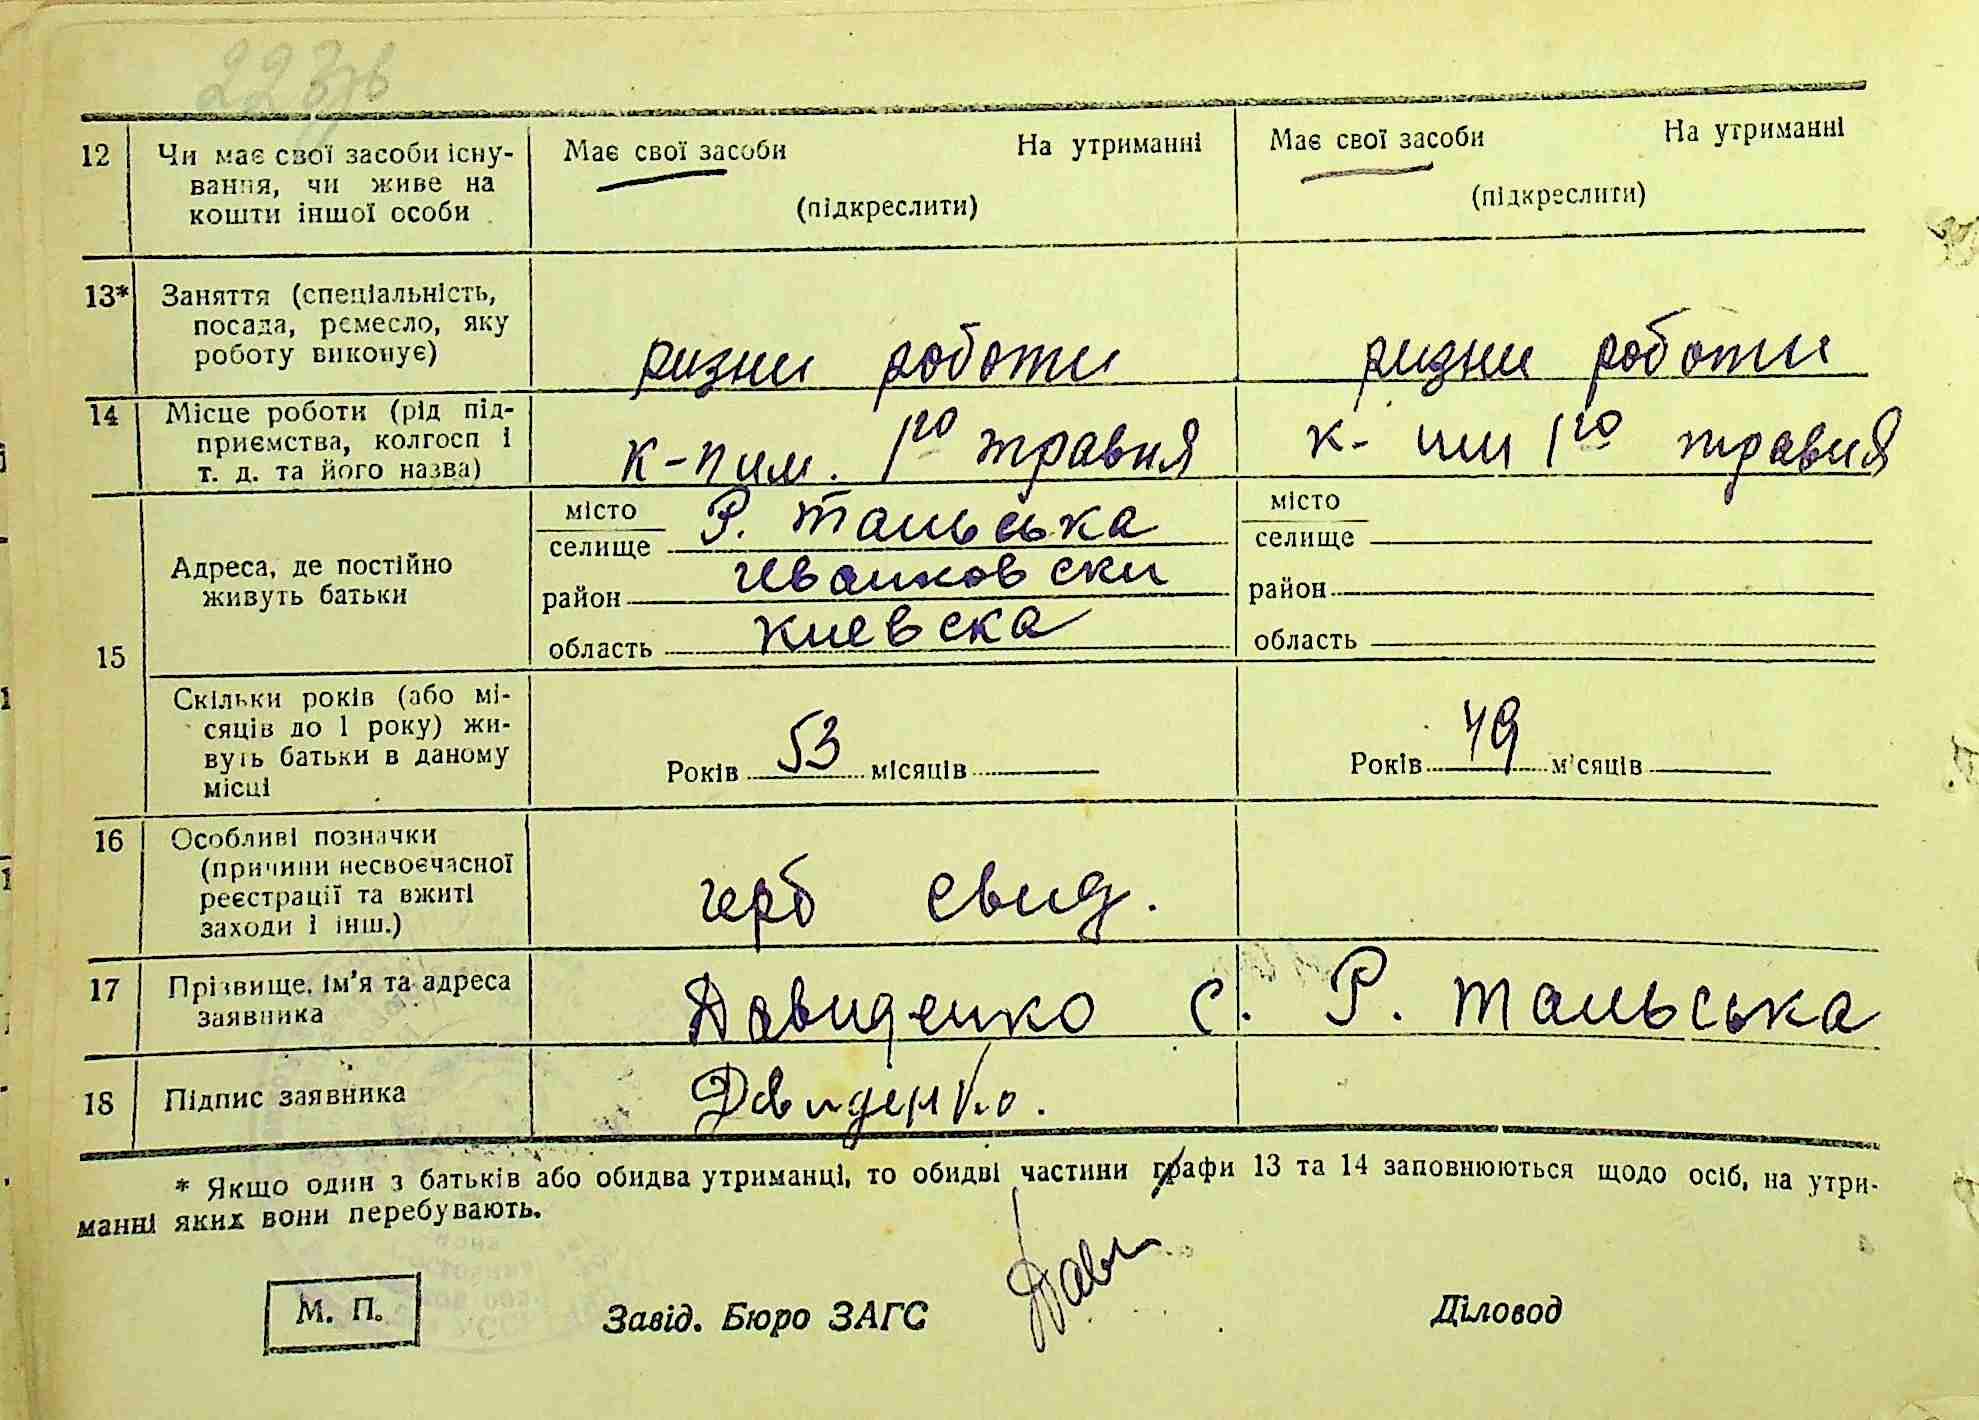 223зв
12 Чи має свої засоби існу- Має свої засоби На утриманні Має свої засоби На утриманні
вання, чи живе на
кошти іншої особи (підкреслити) (підкреслити)
13* Заняття (спеціальність,
посада, ремесло, яку
роботу виконує) ризни роботи ризни роботи
14 Місце роботи (рід під-
приємства, колгосп і
т. д. та його назва) к-п им. 1го травня к- п им 1го травня
місто Р. Тальська місто
селище селище
Адреса, де постійно
живуть батьки район Иванковски район
15 область Киевска область
Скільки років (або мі-
сяців до 1 року) жи-
вуть батьки в даному
місці Років 53 місяців Років 49 м'сяців
16 Особливі позначки
(причини несвоєчасної
реєстрації та вжиті
заходи і інш.) герб свид.
17 Прізвище, ім'я та адреса
заявника Давиденко С. Р. Тальська
18 Підпис заявника Двиденко.
* Якщо один з батьків або обидва утриманці, то обидві частини графи 13 та 14 заповнюються щодо осіб, на утри-
манні яких вони перебувають.
М. П. Завід. Бюро ЗАГС Діловод